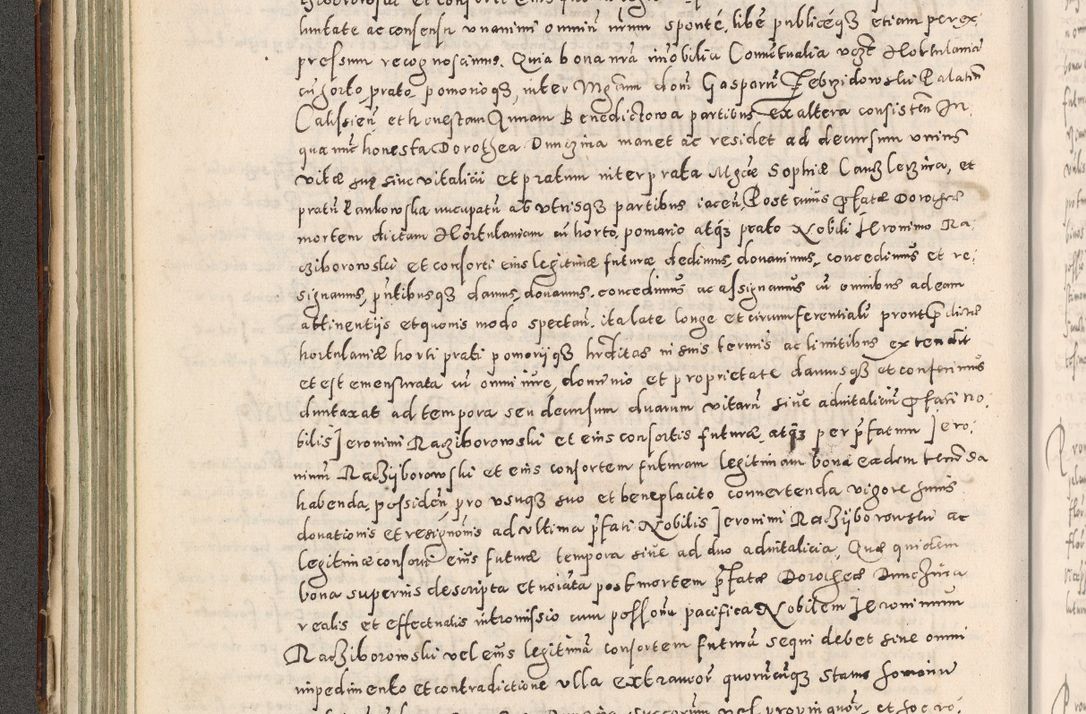 luntate ac consensu unanimi omniũ nrũm sponté, libẽ publicéqz etiam per ex,
pressum recognoscimus. Quia bona nrã imobilia Comutualia vczt Hortulania
cũ horto, prato, pomorioqz, inter Mgcum dom̃ Gasparũ Zebrzidowski Palatin̄
Calissien̄ et honestam Annam Benedictowa partibus ex altera consisten̄ In
qua nũc honesta Dorothea Dunczina manet ac residet ad decursum unius
vitæ suæ siue vitalicii et pratum inter prata Mgcæ Sophiæ Canzlerzina, et
pratũ Pankowska nuncupatũ ab utrisqz partibus iacen̄, Post cuius pfatæ Dorotheæ
mortem dictam Hortulaniam cũ horto, pomario atqz prato Nobili Jeronimo Ra,
cziborowski et consorti eius legitimæ futuræ dedimus, donauimus, concedimus et re,
signamus, pñtibusqz damus, donamus, concedimus ac assignamus cũ omnibus ad eam
attinentijs et quouis modo spectan̄, ita late longe et circumferentialr̃ pront pdictæ
hortulaniæ horti prati pomorijqz hrditas in suis termis ac limitibus extendit
et est emensurata cũ omni iure, dominio et proprietate damusqz et conferimus
duntaxat ad tempora seu decursum duarum vitarũ siue aduitaliciũ pfati no,
bilis Jeronimi Racziborowski et eius consortis futuræ, atqz per pfatum Jero,
nimũ Raczijborowski et eius consortem futuram legitimam bona eædem tenẽda
habenda, possiden̄, pro usuqz suo et beneplacito conuertenda vigore huius
donationis et resignõnis ad ultima pfati Nobilis Jeronimi Raczijborowski ac
legitimæ consortis eius futuræ tempora siue ad duo aduitalicia, Quæ quidem
bona superius descripta et noiãta post mortem pfatæ Dorotheæ Dunczina
realis et effectualis intromissio cum possonũ pacifica Nobilem Jeronimum
Racziborowski vel eius legitimã consortem futurũ sequi debet sine omni
impedimento et contradictione ulla extraneor̃ quorũcũqz status hominũ